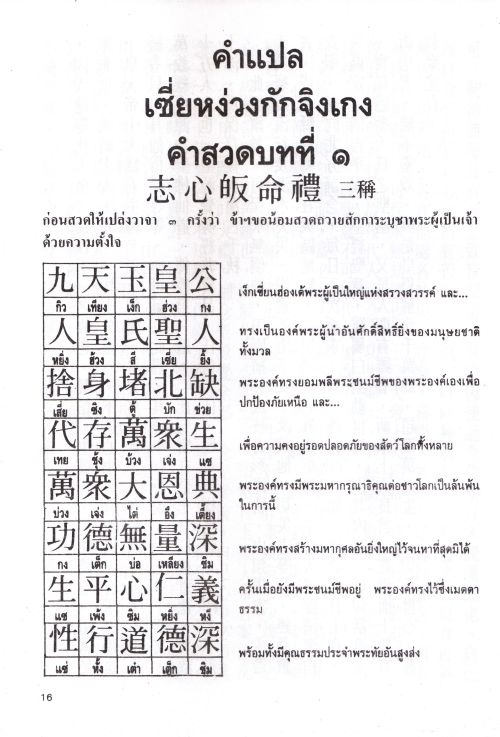 คำแปล
เซี่ยหง่วงกักจิงเกง
คำสวดบทที่ ๑
志心皈命禮 三稱
ก่อนสวดให้เปล่งวาจา ๓ ครั้งว่า ข้าฯขอน้อมสวดถวายสักการะบูชาพระผู้เป็นเจ้า
ด้วยความตั้งใจ
九 天 玉 皇 公
กิว เทียง เง็ก ฮ่วง กง
เง็กเซียนฮ่องเต้พระผู้เป็นใหญ่แห่งสรวงสวรรค์ และ...
人 皇 氏 聖 人
หยิ่ง ฮ้วง สี เซี่ย ยิ้ง
ทรงเป็นองค์พระผู้นำอันศักดิ์สิทธิ์ยิ่งของมนุษยชาติ
ทั้งมวล
捨 身 堵 北 缺
เสี่ย ซิง ตู้ บัก ข่วย
พระองค์ทรงยอมพลีพระชนม์ชีพของพระองค์เองเพื่อ
ปกป้องภัยเหนือ และ...
代 存 萬 衆 生
เทย ชุ้ง บ้วง เจ่ง แซ
เพื่อความคงอยู่รอดปลอดภัยของสัตว์โลกทั้งหลาย
萬 衆 大 恩 典
บ่วง เจ่ง ไต่ อึง เตี้ยง
พระองค์ทรงมีพระมหากรุณาธิคุณต่อชาวโลกเป็นล้นพ้น
ในการนี้
功 德 無 量 深
กง เต็ก บ่อ เหลียง ชิม
พระองค์ทรงสร้างมหากุศลอันยิ่งใหญ่ไว้จนหาที่สุดมิได้
生 平 心 仁 義
แซ เพ้ง ซิม หยิ่ง หงี
ครั้นเมื่อยังมีพระชนม์ชีพอยู่ พระองค์ทรงไว้ซึ่งเมตตา
ธรรม
性 行 道 德 深
แซ่ หั้ง เต๋า เต็ก ชิม
พร้อมทั้งมีคุณธรรมประจำพระทัยอันสูงส่ง
16